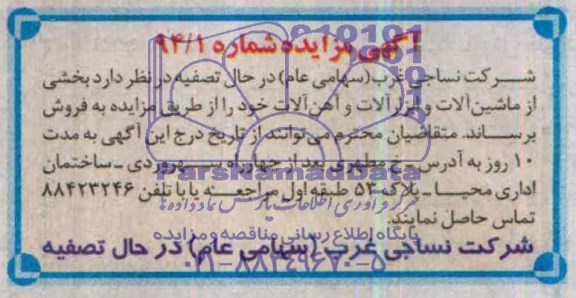 آگهی مزایده شماره ۹۴/۱
شرکت نساجی غرب (سهامی عام) در حال تصفیه در نظر دارد بخشی
از ماشین‌آلات و ابزارآلات و آهن‌آلات خود را از طریق مزایده به فروش
برساند. متقاضیان محترم می‌توانند از تاریخ درج این آگهی به مدت
۱۰ روز به آدرس ـ خ مطهری بعد از چهارراه سهروردی ـ ساختمان
اداری محیا ـ پلاک ۵۳ طبقه اول مراجعه یا با تلفن ۸۸۴۲۳۲۴۶
تماس حاصل نمایند.
شرکت نساجی غرب (سهامی عام) در حال تصفیه
ParsNamadData
مرکز فرآوری اطلاعات پارس نماد داده‌ها
پایگاه اطلاع رسانی مناقصه و مزایده
۰۲۱-۸۸۳۴۹۶۷۰-۵